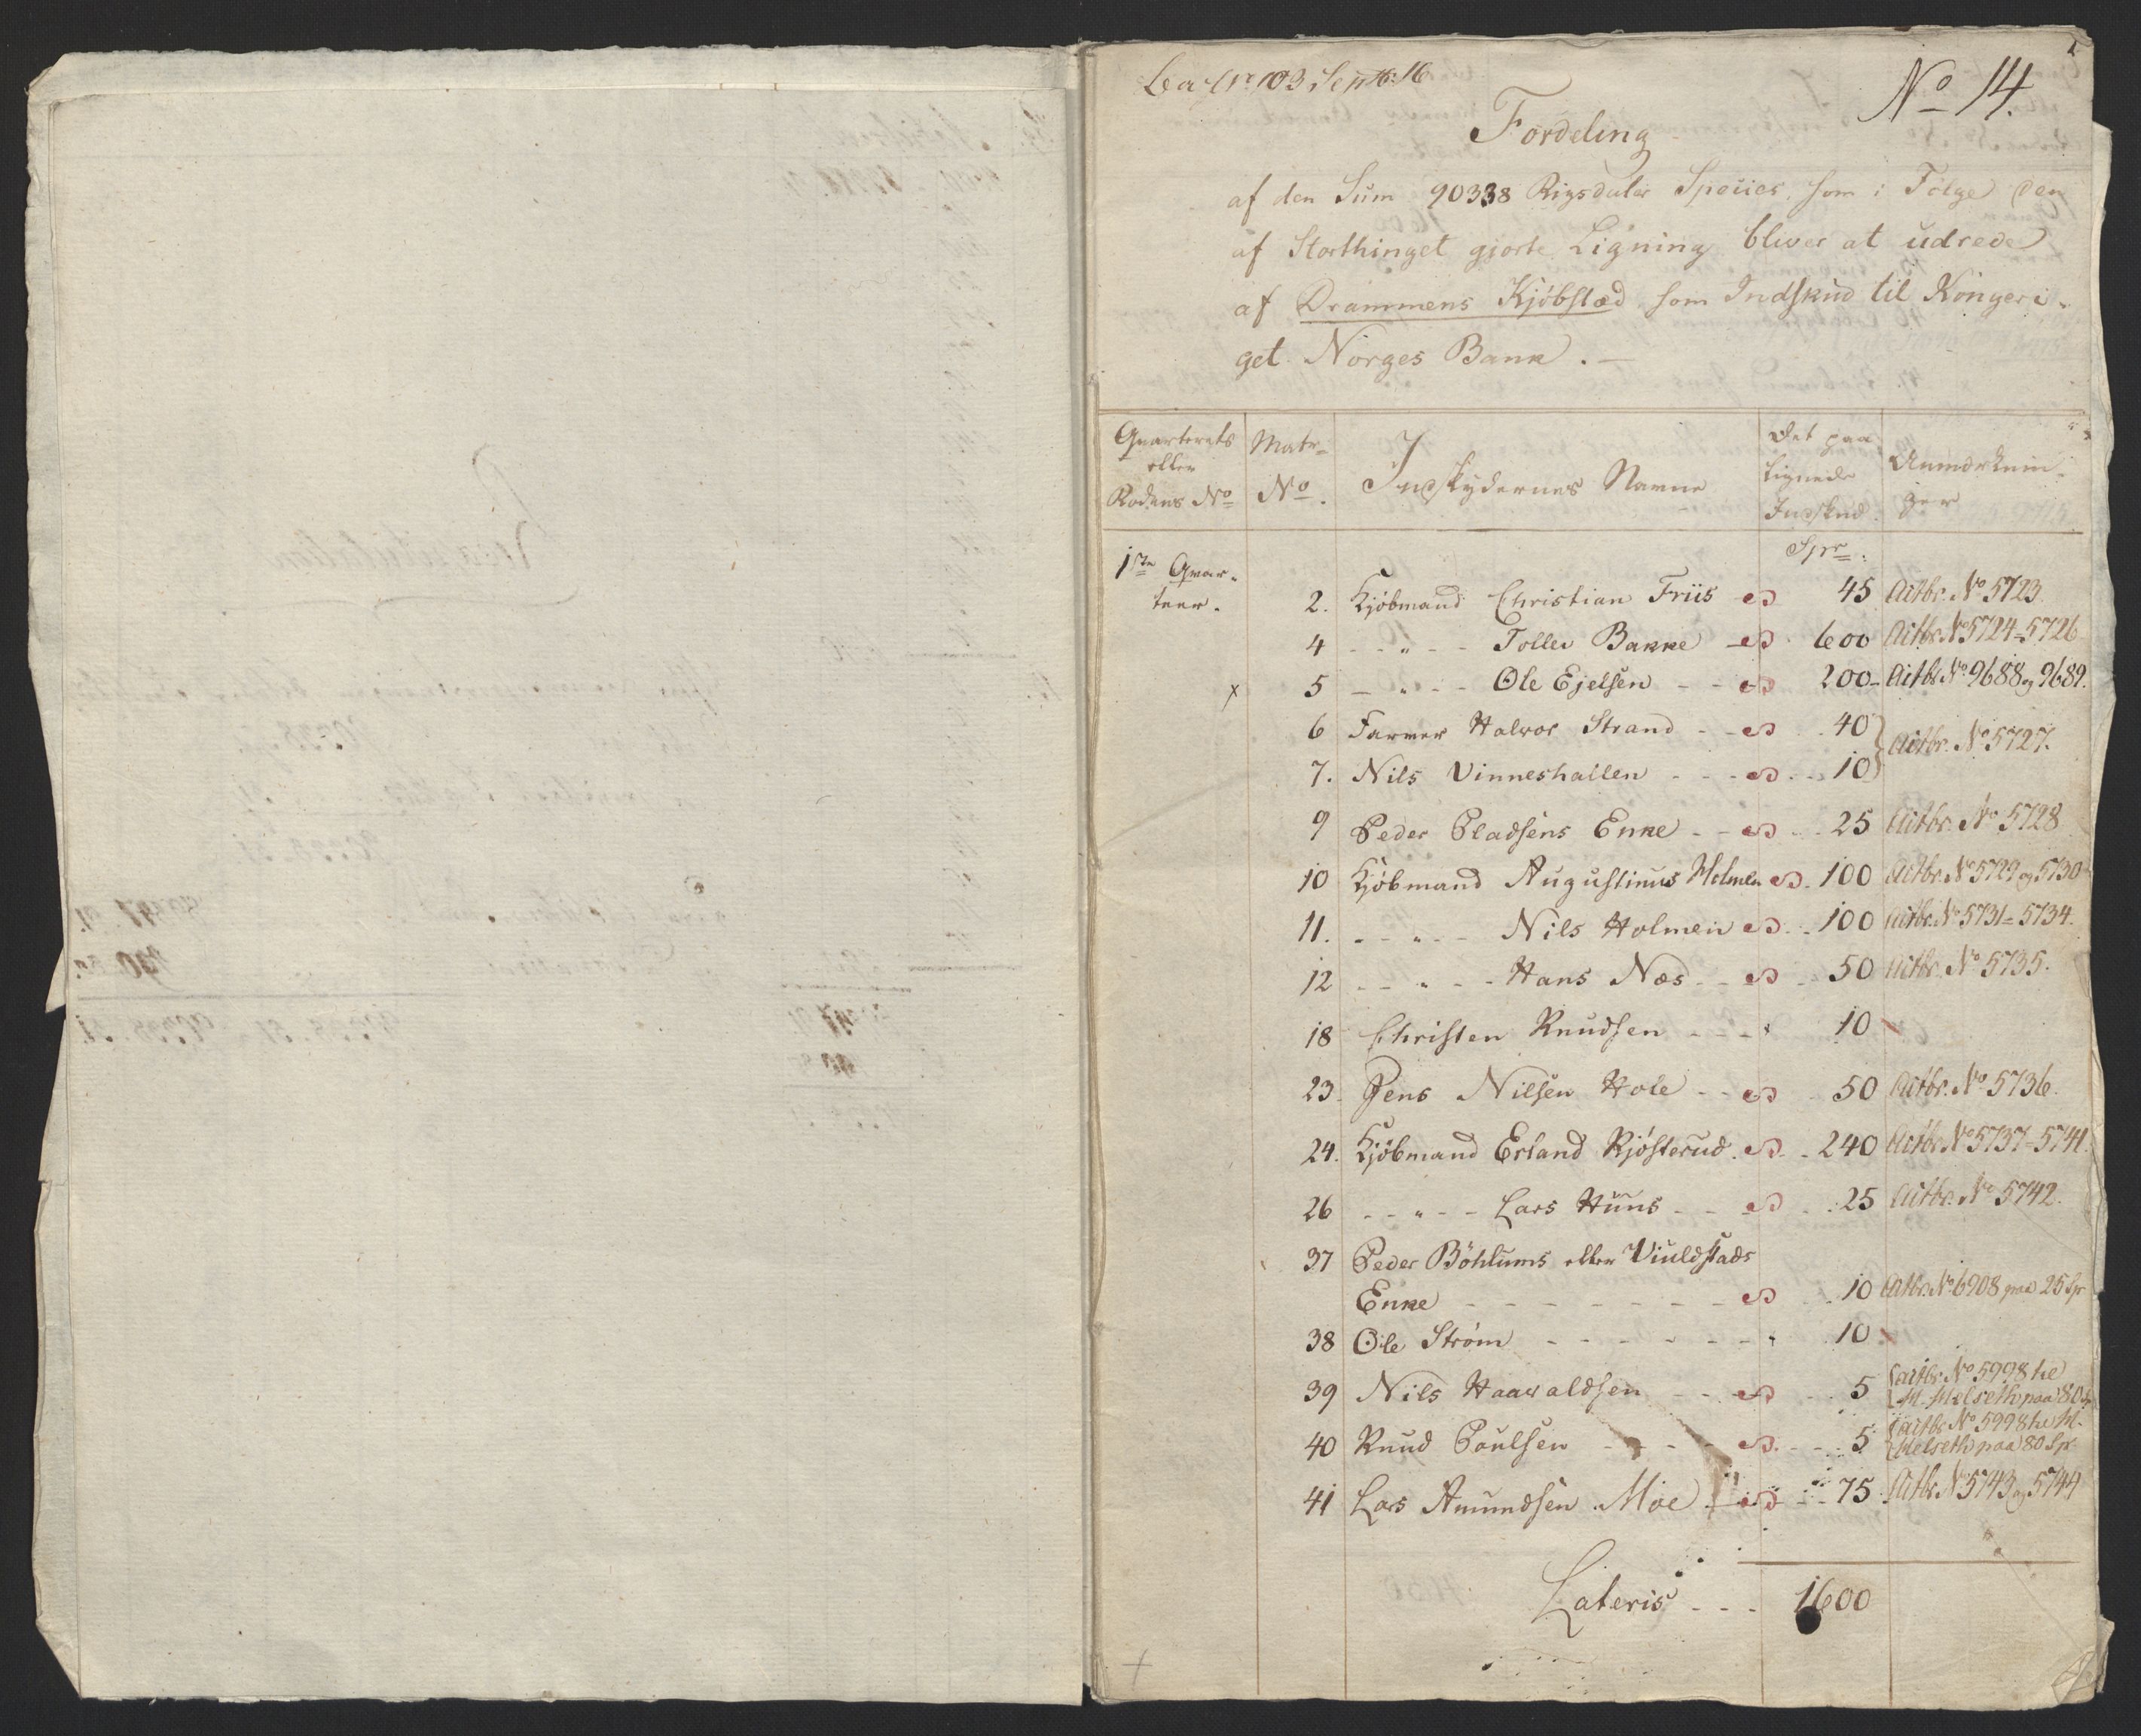 No 14.
Fordeling
af den Sum 90338 Rigsdaler Species, som i Følge den
af Storthinget gjorte Ligning bliver at udrede
af Drammens Kjöbstæd som Indskud til Kongeri-
get Norges Bank. —
Qvarterets eller Rodens No | Matr. No. | Indskydernes Navne | Det paa lignede Indskud | Anmærknin- ger
1ste Qvar- teer. | Spec.
2. Kjöbmand Christian Friis 45 Actbr. No 5723.
4 - - " - - Tollev Bakke 600 Actbr. No 5724=5726
x 5 - " - - Ole Ejelsen - - 200 - Actbr. No 9688 og 9689.
6 Farver Halvor Strand - - 40
7. Nils Vinneshallen - - - 10 } Actbr. No 5727.
9 Peder Pladsens Enke - - 25 Actbr. No 5728
10 Kjöbmand Augustinus Holmen 100 Actbr. No 5729 og 5730
11. - - " - - Nils Holmen 100 Actbr. No 5731=5734.
12 - - " - - Hans Næs - - 50 Actbr. No 5735.
18 Christen Knudsen - - - 10
23. Jens Nilsen Hole - - 50 Actbr. No 5736.
24. Kjöbmand Erland Kjösterud 240 Actbr. No 5737=5741.
26 - - " - - Lars Huus - - 25 Actbr. No 5742.
37 Peder Böhlums eller Viuldstads
Enke - - - - - - - 10 Actbr. No 6908 paa 25 Sp
38 Ole Ström - - - - - - 10
39 Nils Haavaldsen - - - 5 { Actbr. No 5998 til
M. Helseth paa 80 Sp
40 Knud Poulsen - - - - 5 { Actbr. No 5998 til M.
Helseth paa 80 Sp.
41 Lars Amundsen Moe 75 Actbr. No 5743 og 5744
Lateris - - - 1600